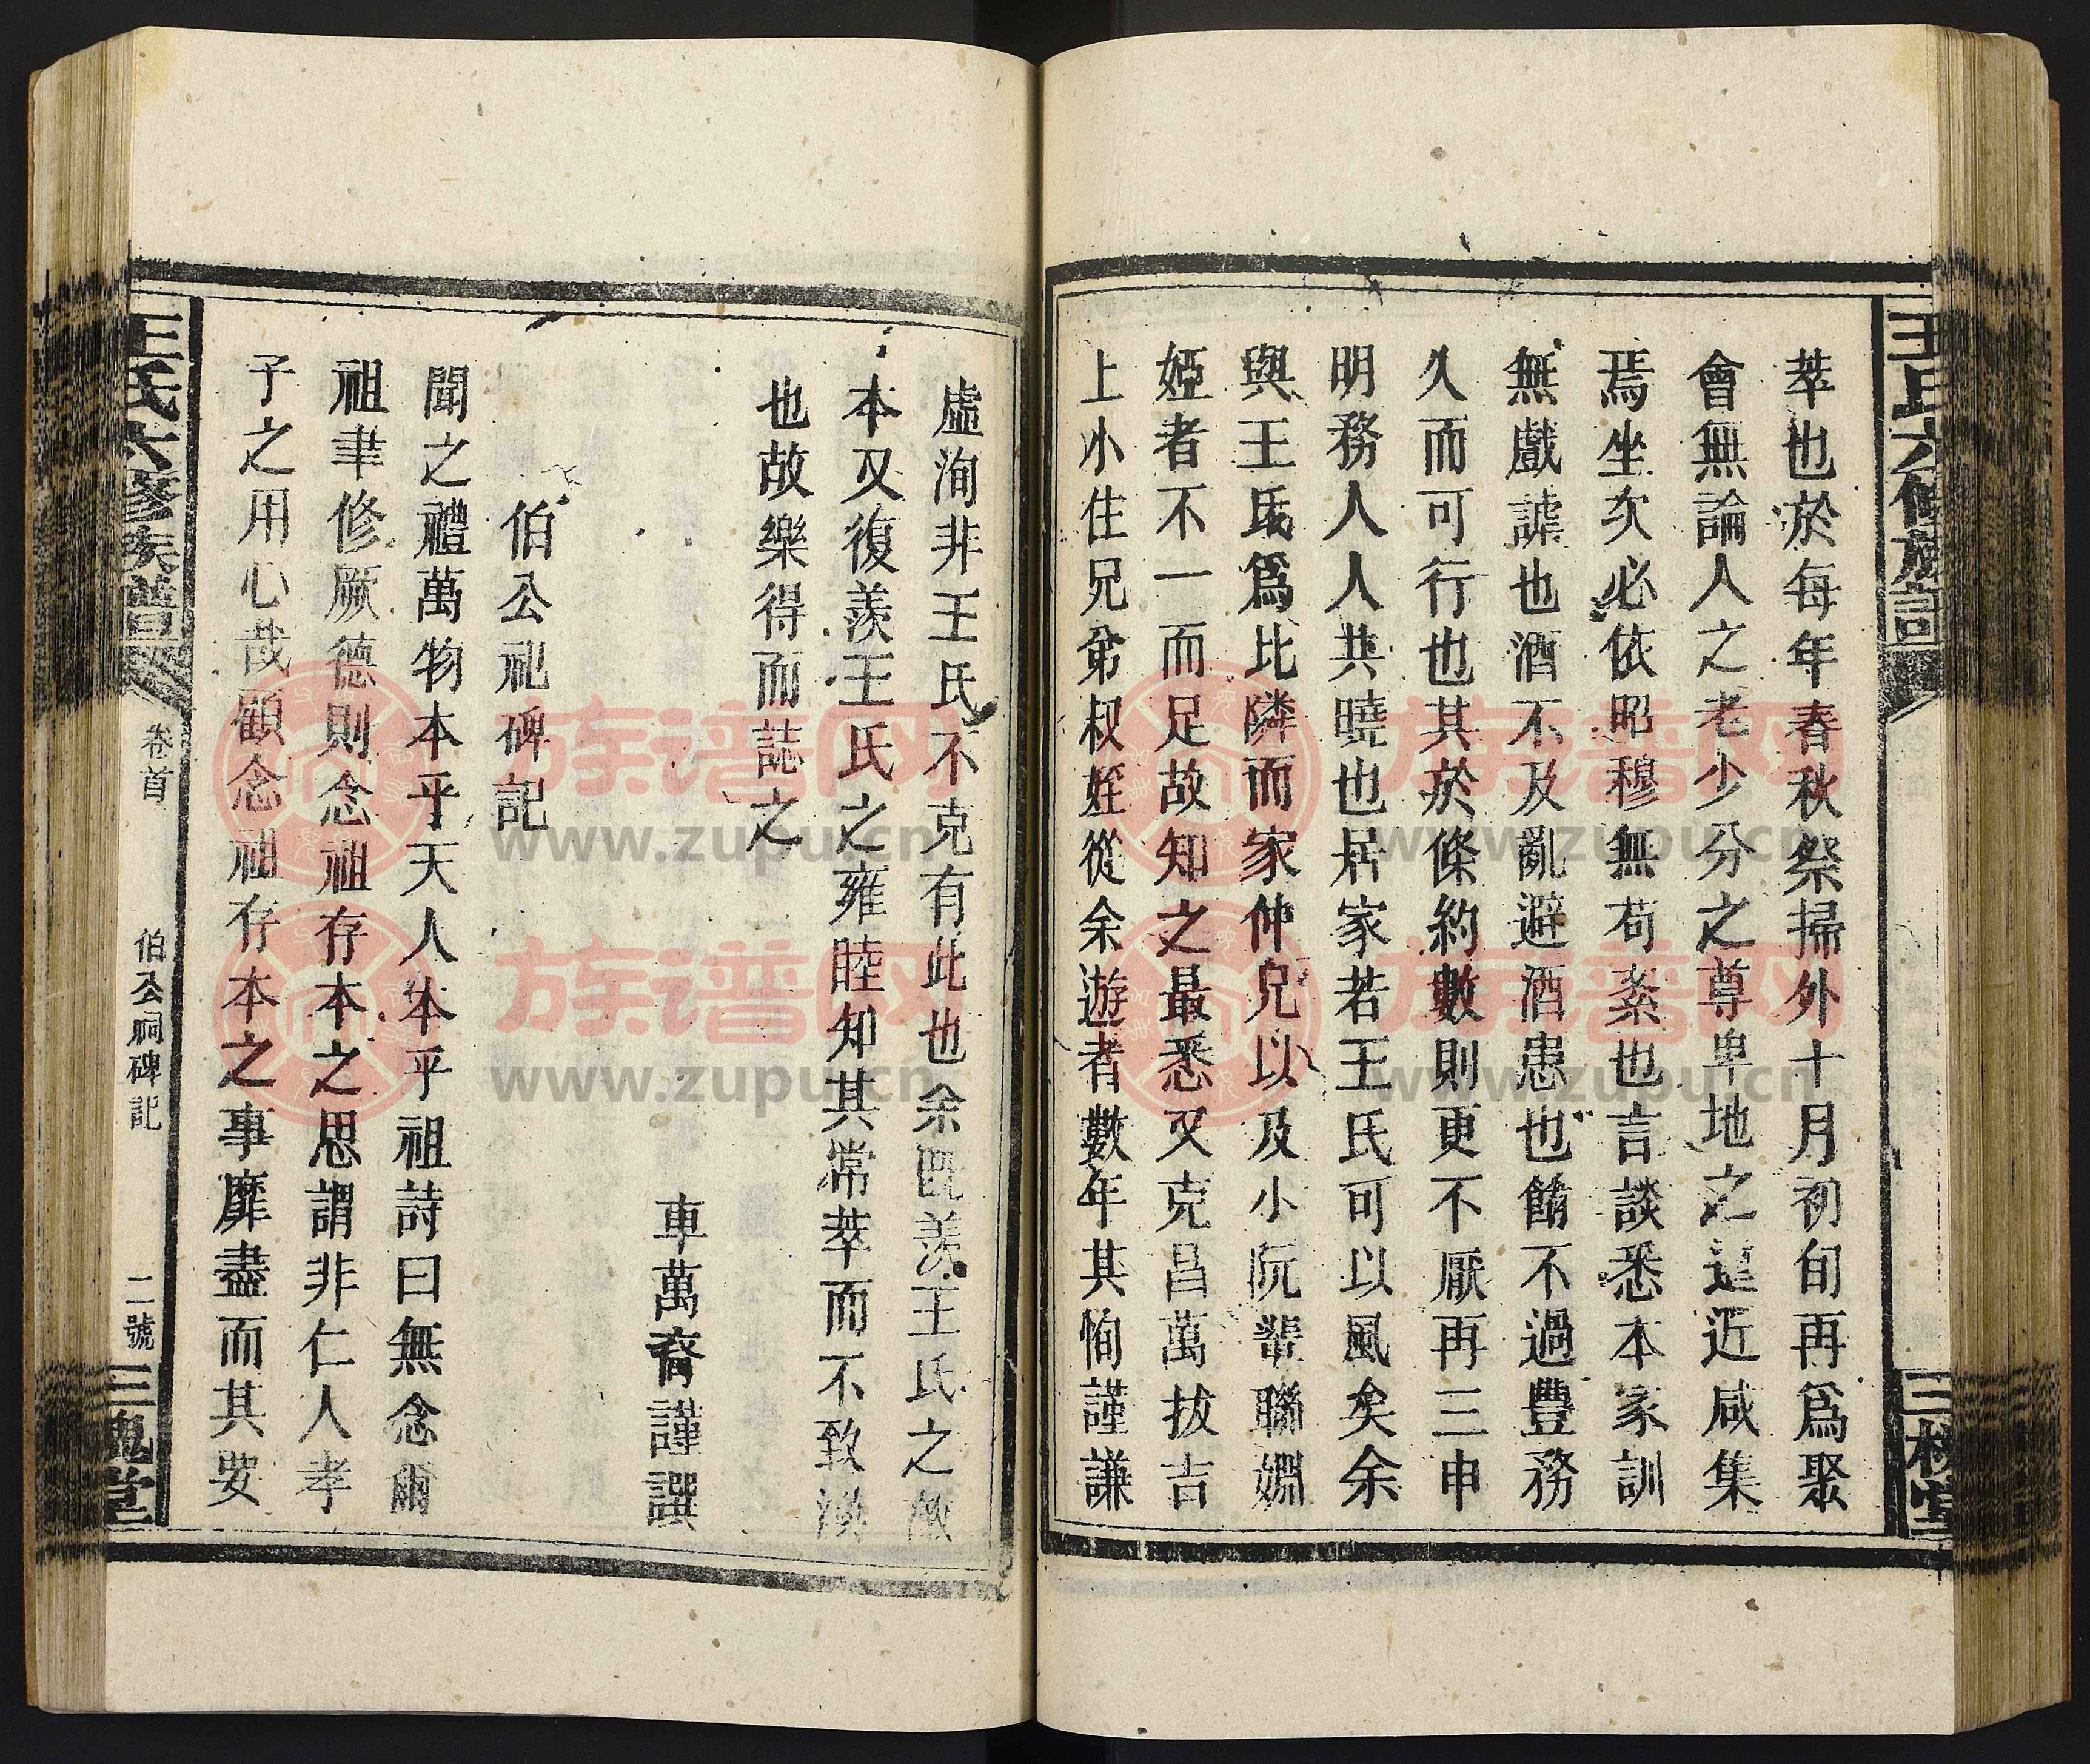 王氏六修族譜
三槐堂
萃也於每年春秋祭掃外十月初旬再爲聚
會無論人之老少分之尊卑地之遠近咸集
焉坐次必依昭穆無苟紊也言談悉本家訓
無戲謔也酒不及亂避酒患也餚不過豐務
久而可行也其於條約數則更不厭再三申
明務人人共曉也居家若王氏可以風矣余
與王氏爲比隣而家仲兄以及小阮輩聯姻
婭者不一而足故知之最悉又克昌萬拔吉
上小住兄弟叔姪從余遊者數年其恂謹謙
虛洵非王氏不克有此也余既羨王氏之敦
本又復羨王氏之雍睦知其常萃而不致渙
也故樂得而誌之
車萬育謹譔
伯公祀碑記
聞之禮萬物本乎天人本乎祖詩曰無念爾
祖聿修厥德則念祖存本之思謂非仁人孝
子之用心哉顧念祖存本之事靡盡而其要
王氏六修族譜
卷首
伯公祠碑記
二號
三槐堂
族谱网
www.zupu.cn
族谱网
www.zupu.cn
族谱网
www.zupu.cn
族谱网
www.zupu.cn